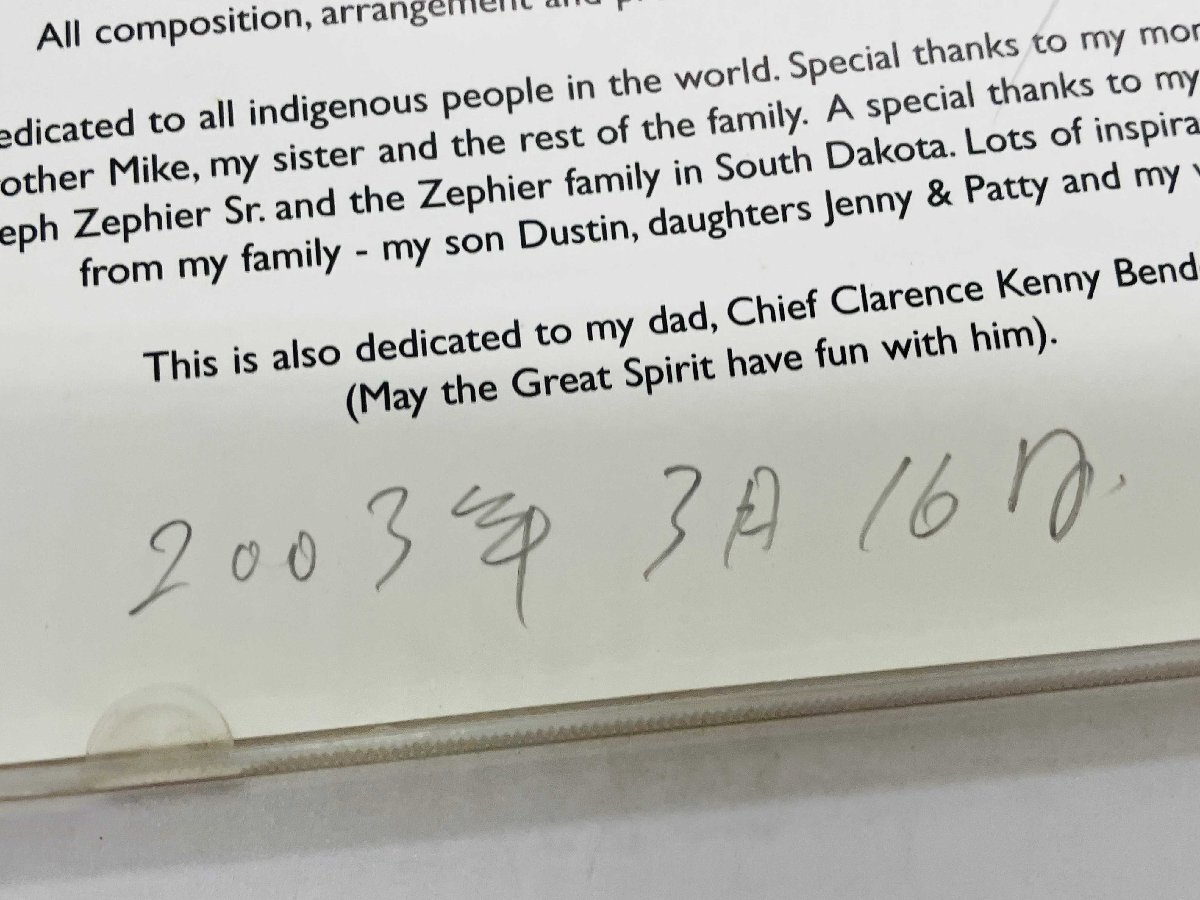 All composition, arrangement and
edicated to all indigenous people in the world. Special thanks to my mom
other Mike, my sister and the rest of the family. A special thanks to my
eph Zephier Sr. and the Zephier family in South Dakota. Lots of inspira
from my family - my son Dustin, daughters Jenny & Patty and my
This is also dedicated to my dad, Chief Clarence Kenny Bend
(May the Great Spirit have fun with him).
2003年 3月 16日.